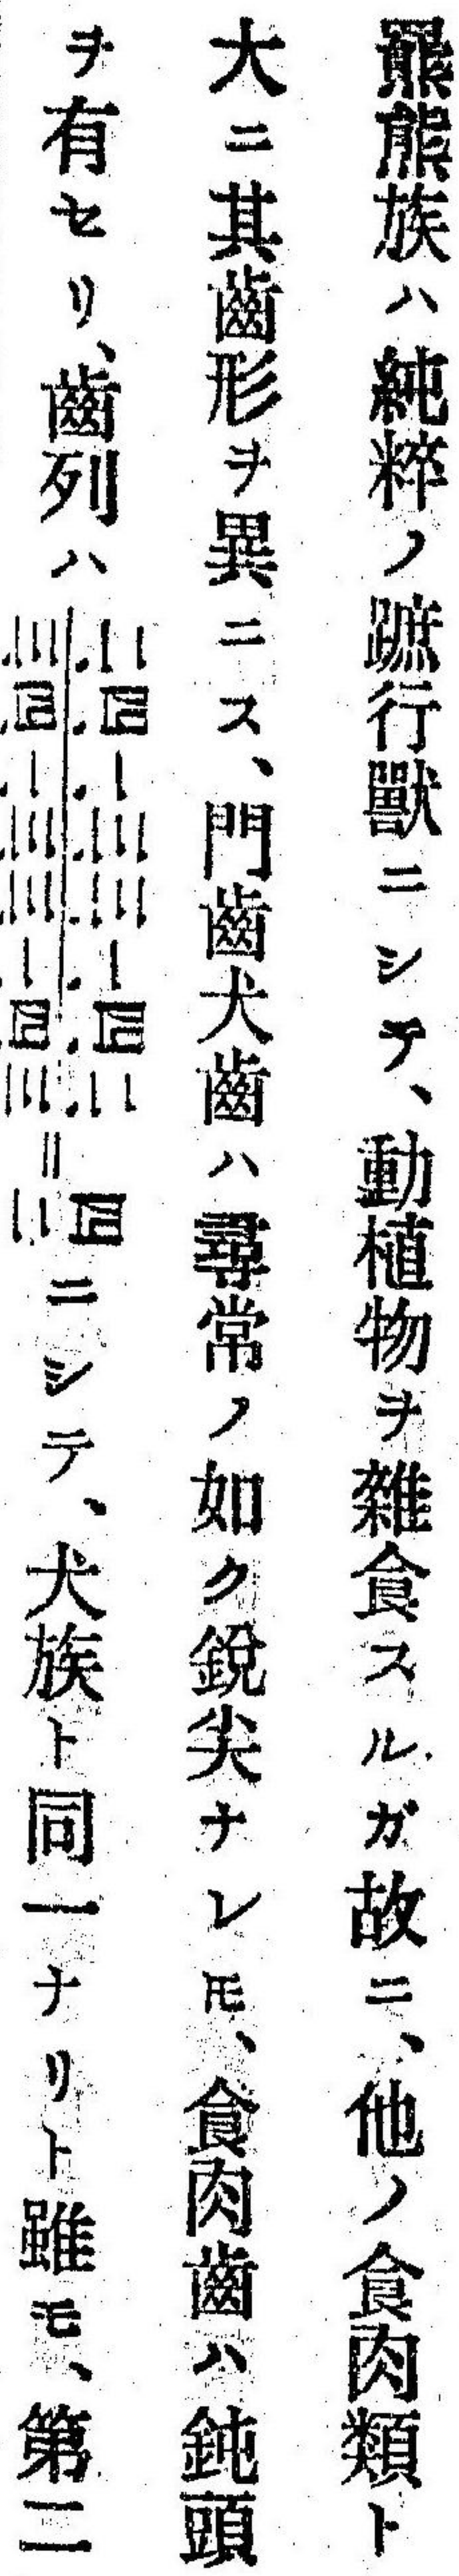 羆熊族ハ純粹ノ蹠行獸ニシテ、動植物ヲ雜食スルガ故ニ、他ノ食肉類ト
大ニ其齒形ヲ異ニス、門齒犬齒ハ尋常ノ如ク銳尖ナレ𪜈、食肉齒ハ鈍頭
ヲ有セリ、齒列ハ二.四.一.三.三.一.四.二/三.四.一.三.三.一.四.三=四二ニシテ、犬族ト同一ナリト雖モ、第二